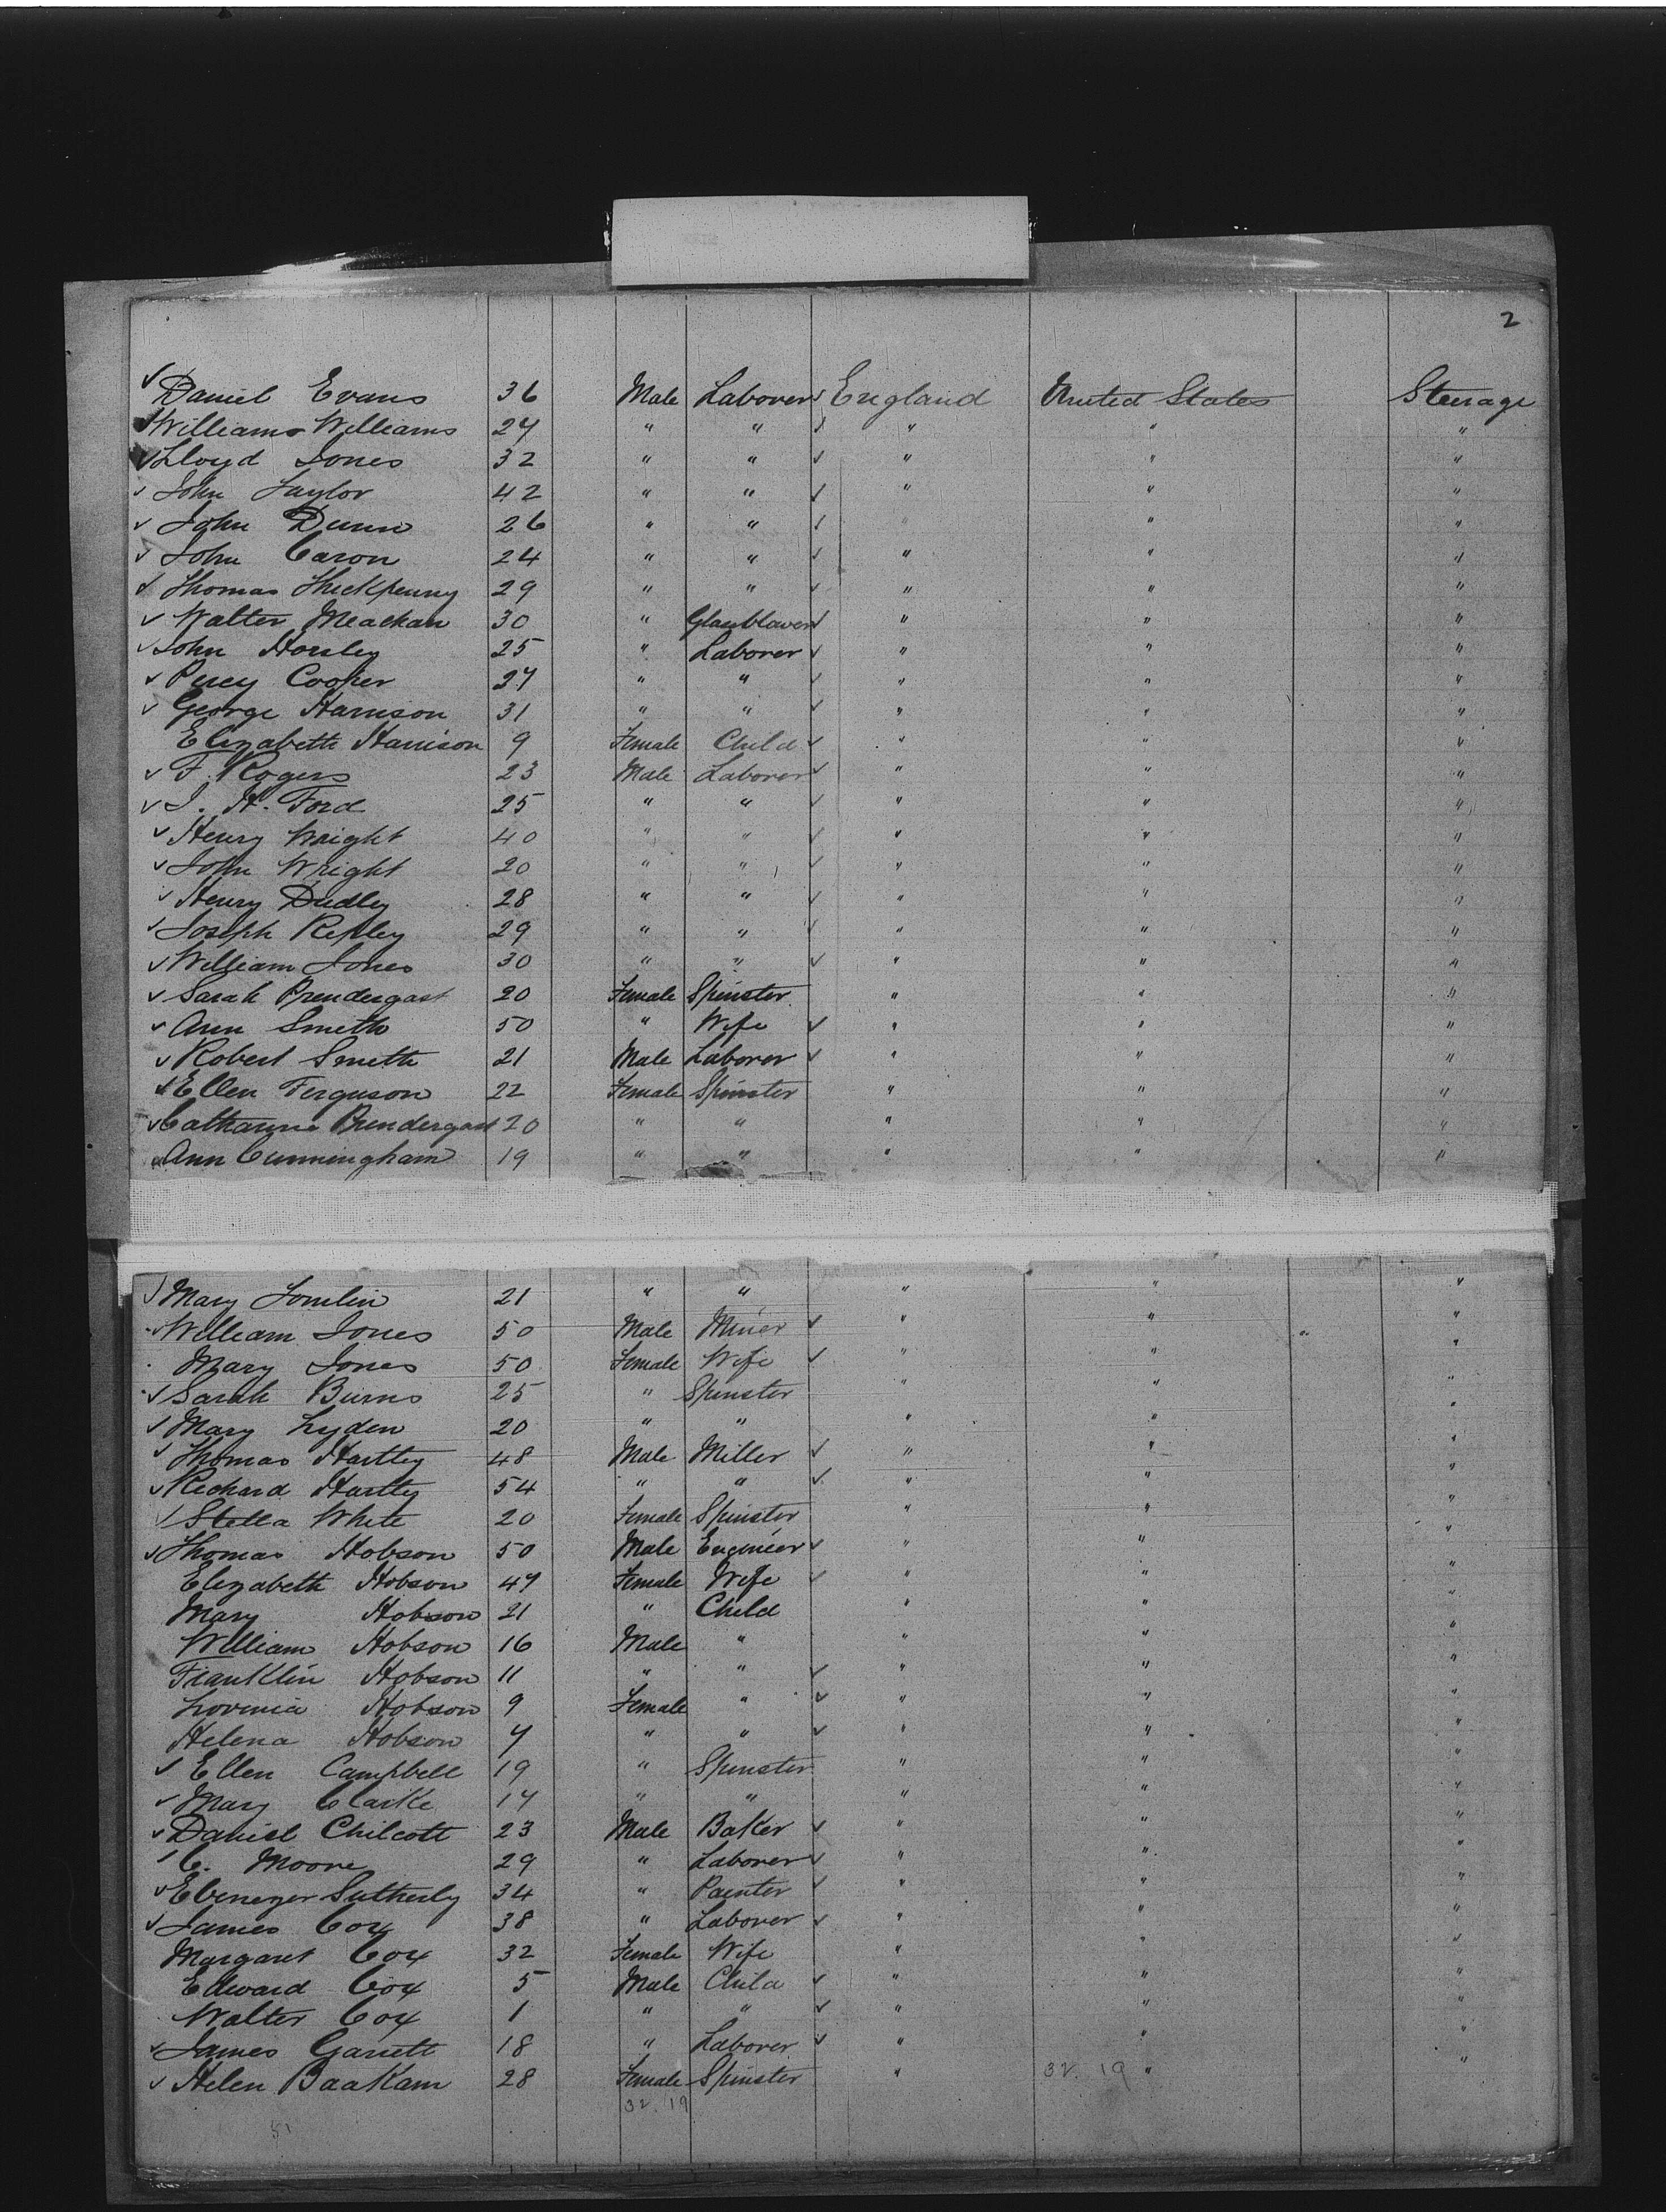 2
Daniel Evans 36 Male Laborer England United States Steerage
Williams Williams 27 " " " " "
Lloyd Jones 32 " " " " "
John Taylor 42 " " " " "
John Dunn 26 " " " " "
John Caron 24 " " " " "
Thomas Thickpenny 29 " " " " "
Walter Meachan 30 " Glassblower " " "
John Horsley 25 " Laborer " " "
Percy Cooper 27 " " " " "
George Harrison 31 " " " " "
Elizabeth Harrison 9 Female Child " " "
F. Rogers 23 Male Laborer " " "
J. H. Ford 25 " " " " "
Henry Wright 40 " " " " "
John Wright 20 " " " " "
Henry Dudley 28 " " " " "
Joseph Ripley 29 " " " " "
William Jones 30 " " " " "
Sarah Prendergast 20 Female Spinster " " "
Ann Smith 50 " Wife " " "
Robert Smith 21 Male Laborer " " "
Ellen Ferguson 22 Female Spinster " " "
Catharine Prendergast 20 " " " " "
Ann Cunningham 19 " " " " "
Mary Tomlin 21 " " " " "
William Jones 50 Male Miner " " "
Mary Jones 50 Female Wife " " "
Sarah Burns 25 " Spinster " " "
Mary Lyden 20 " " " " "
Thomas Hartley 48 Male Miller " " "
Richard Hartley 54 " " " " "
Stella White 20 Female Spinster " " "
Thomas Hobson 50 Male Engineer " " "
Elizabeth Hobson 47 Female Wife " " "
Mary Hobson 21 " Child " " "
William Hobson 16 Male " " " "
Franklin Hobson 11 " " " " "
Lovinia Hobson 9 Female " " " "
Helena Hobson 7 " " " " "
Ellen Campbell 19 " Spinster " " "
Mary Clarke 17 " " " " "
Daniel Chilcott 23 Male Baker " " "
C. Moore 29 " Laborer " " "
Ebenezer Sutherly 34 " Painter " " "
James Cox 38 " Laborer " " "
Margaret Cox 32 Female Wife " " "
Edward Cox 5 Male Child " " "
Walter Cox 1 " " " " "
James Garrett 18 " Laborer " " "
Helen Baakam 28 Female Spinster " 32. 19 " "
32. 19
51